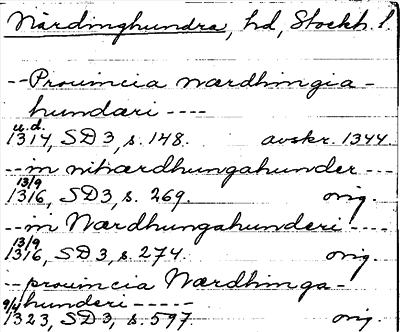 Närdinghundra, hd, Stockh. l.
-- Prouincia nærdhingia-
hundæri ----
u.d.
1314, SD 3, s. 148. avskr. 1344
-- in nihærdhungahunder ---
13/9
1316, SD3, s. 269. orig.
-- in Nærdhungahunderi ----
13/9
1316, SD3, s. 274. orig.
-- prouincia Nærdhinga-
hunderi -----
9/4
1323, SD3, s. 597. orig.